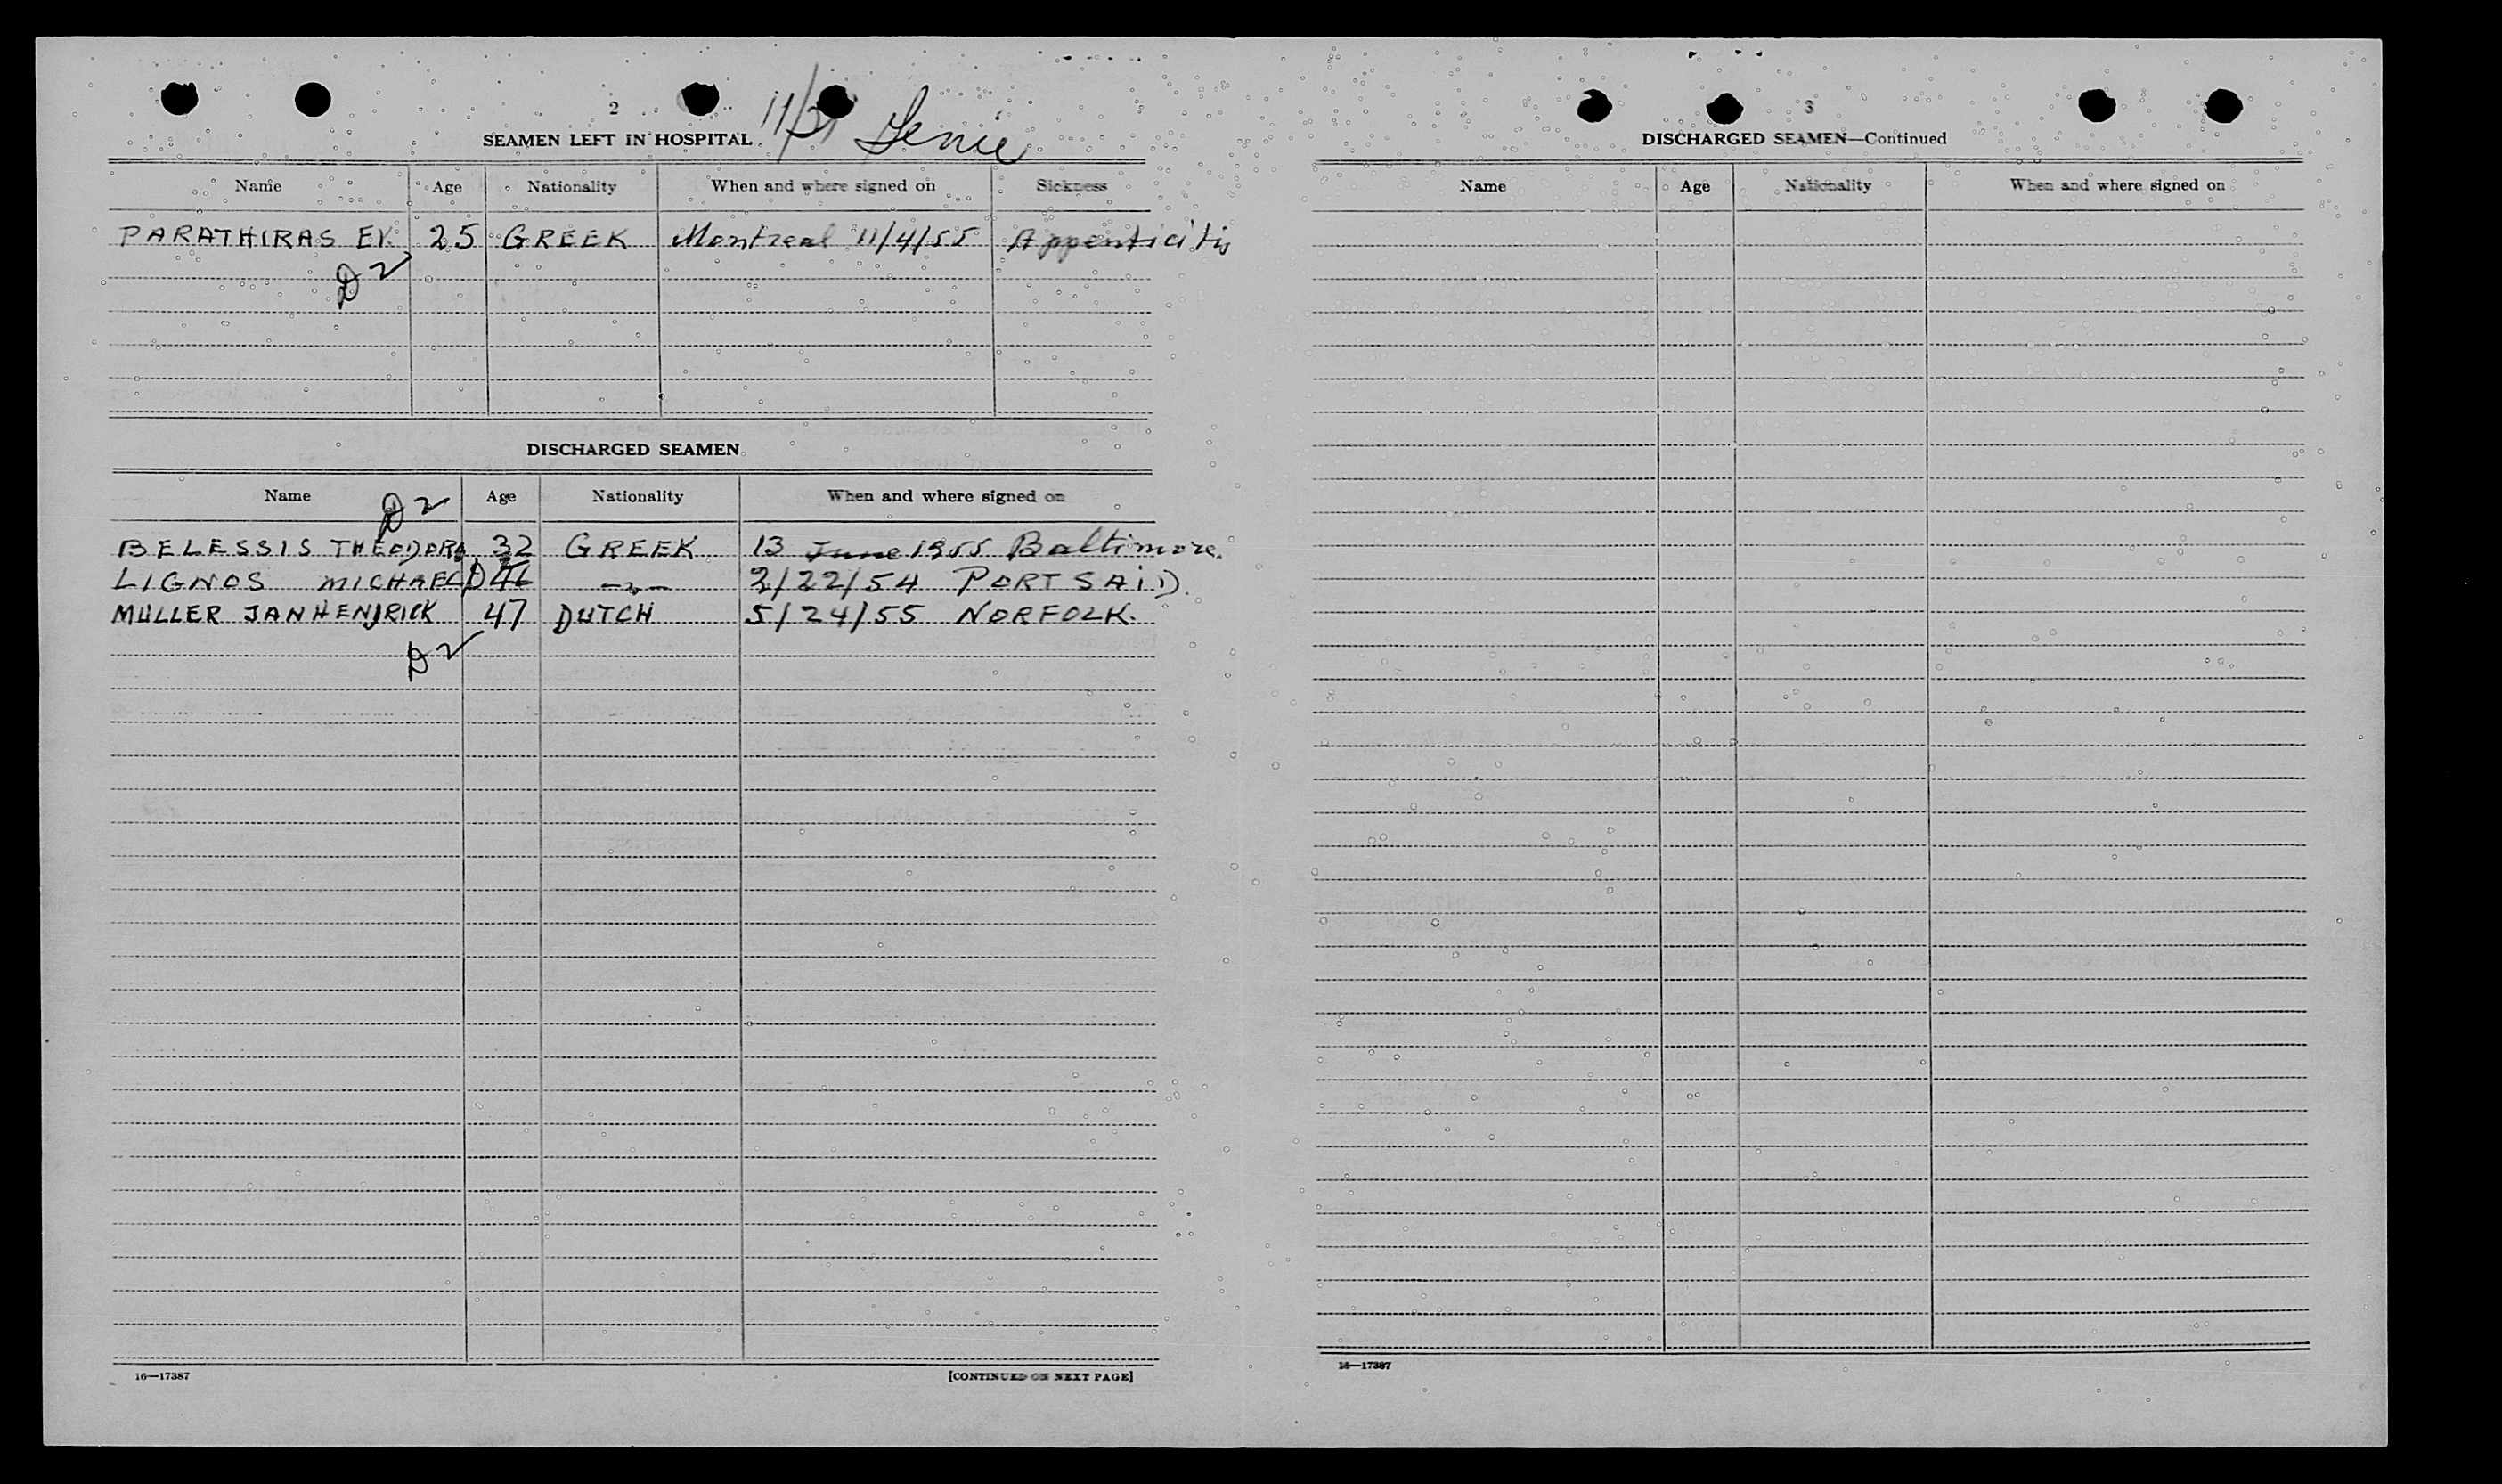 2
11/31 Genie
SEAMEN LEFT IN HOSPITAL
Name Age Nationality When and where signed on Sickness
PARATHIRAS EV. 25 GREEK Montreal 11/4/55 Appenticitis
D2
DISCHARGED SEAMEN
Name Age Nationality When and where signed on
D2
BELESSIS THEODORO 32 GREEK 13 June 1955 Baltimore.
LIGNOS MICHAEL D2 46 -〃- 2/22/54 PORT SAID.
MULLER JAN HENDRICK 47 DUTCH 5/24/55 NORFOLK.
D2
16—17387 [CONTINUED ON NEXT PAGE]
3
DISCHARGED SEAMEN—Continued
Name Age Nationality When and where signed on
16—17387